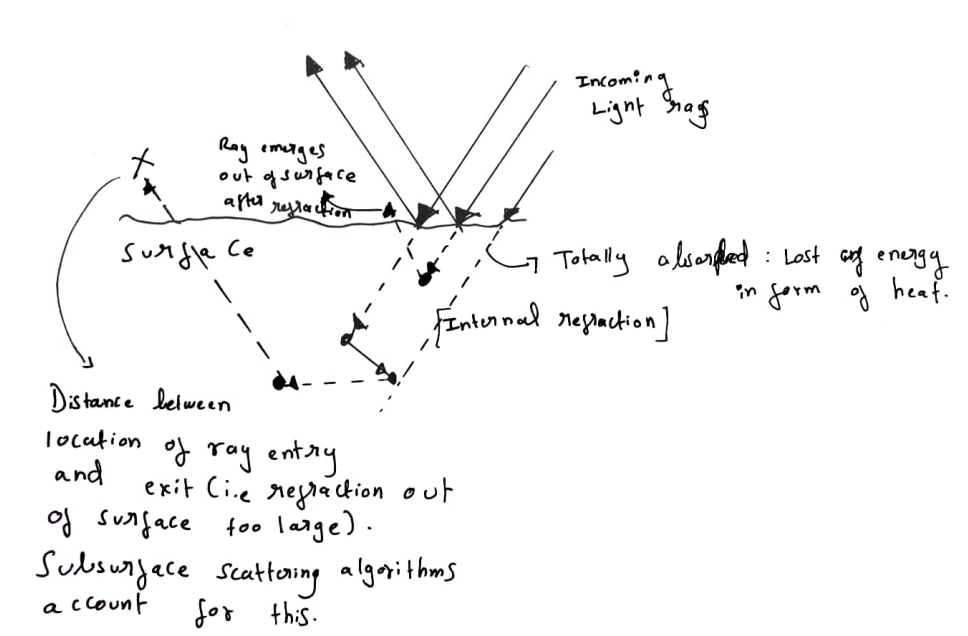 Incoming
Light rays
Ray emerges
out of surface
after refraction
Surface
Totally absorbed : Lost of energy
in form of heat.
[Internal refraction]
X
Distance between
location of ray entry
and exit (i.e refraction out
of surface too large).
Subsurface scattering algorithms
account for this.